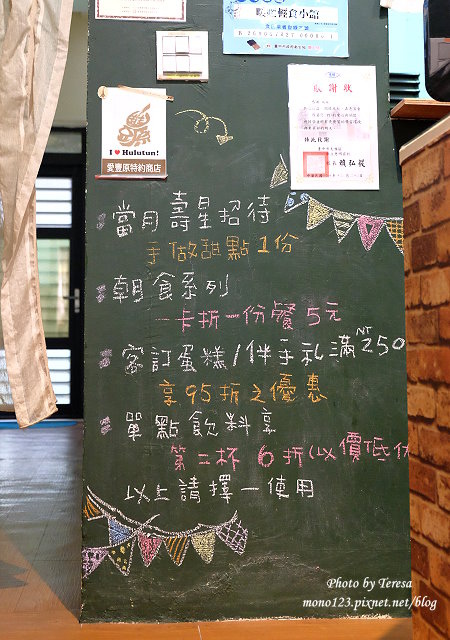 暖心輕食小館
感謝狀
特此致謝
I ♥ Hulutun!
愛豐原特約商店
當月壽星招待
手做甜點1份
朝食系列
一卡折一份餐5元
客訂蛋糕/伴手礼滿NT250
享95折之優惠
單點飲料享
第二杯6折(以價低
以上請擇一使用
Photo by Teresa
mono123.pixnet.net/blog